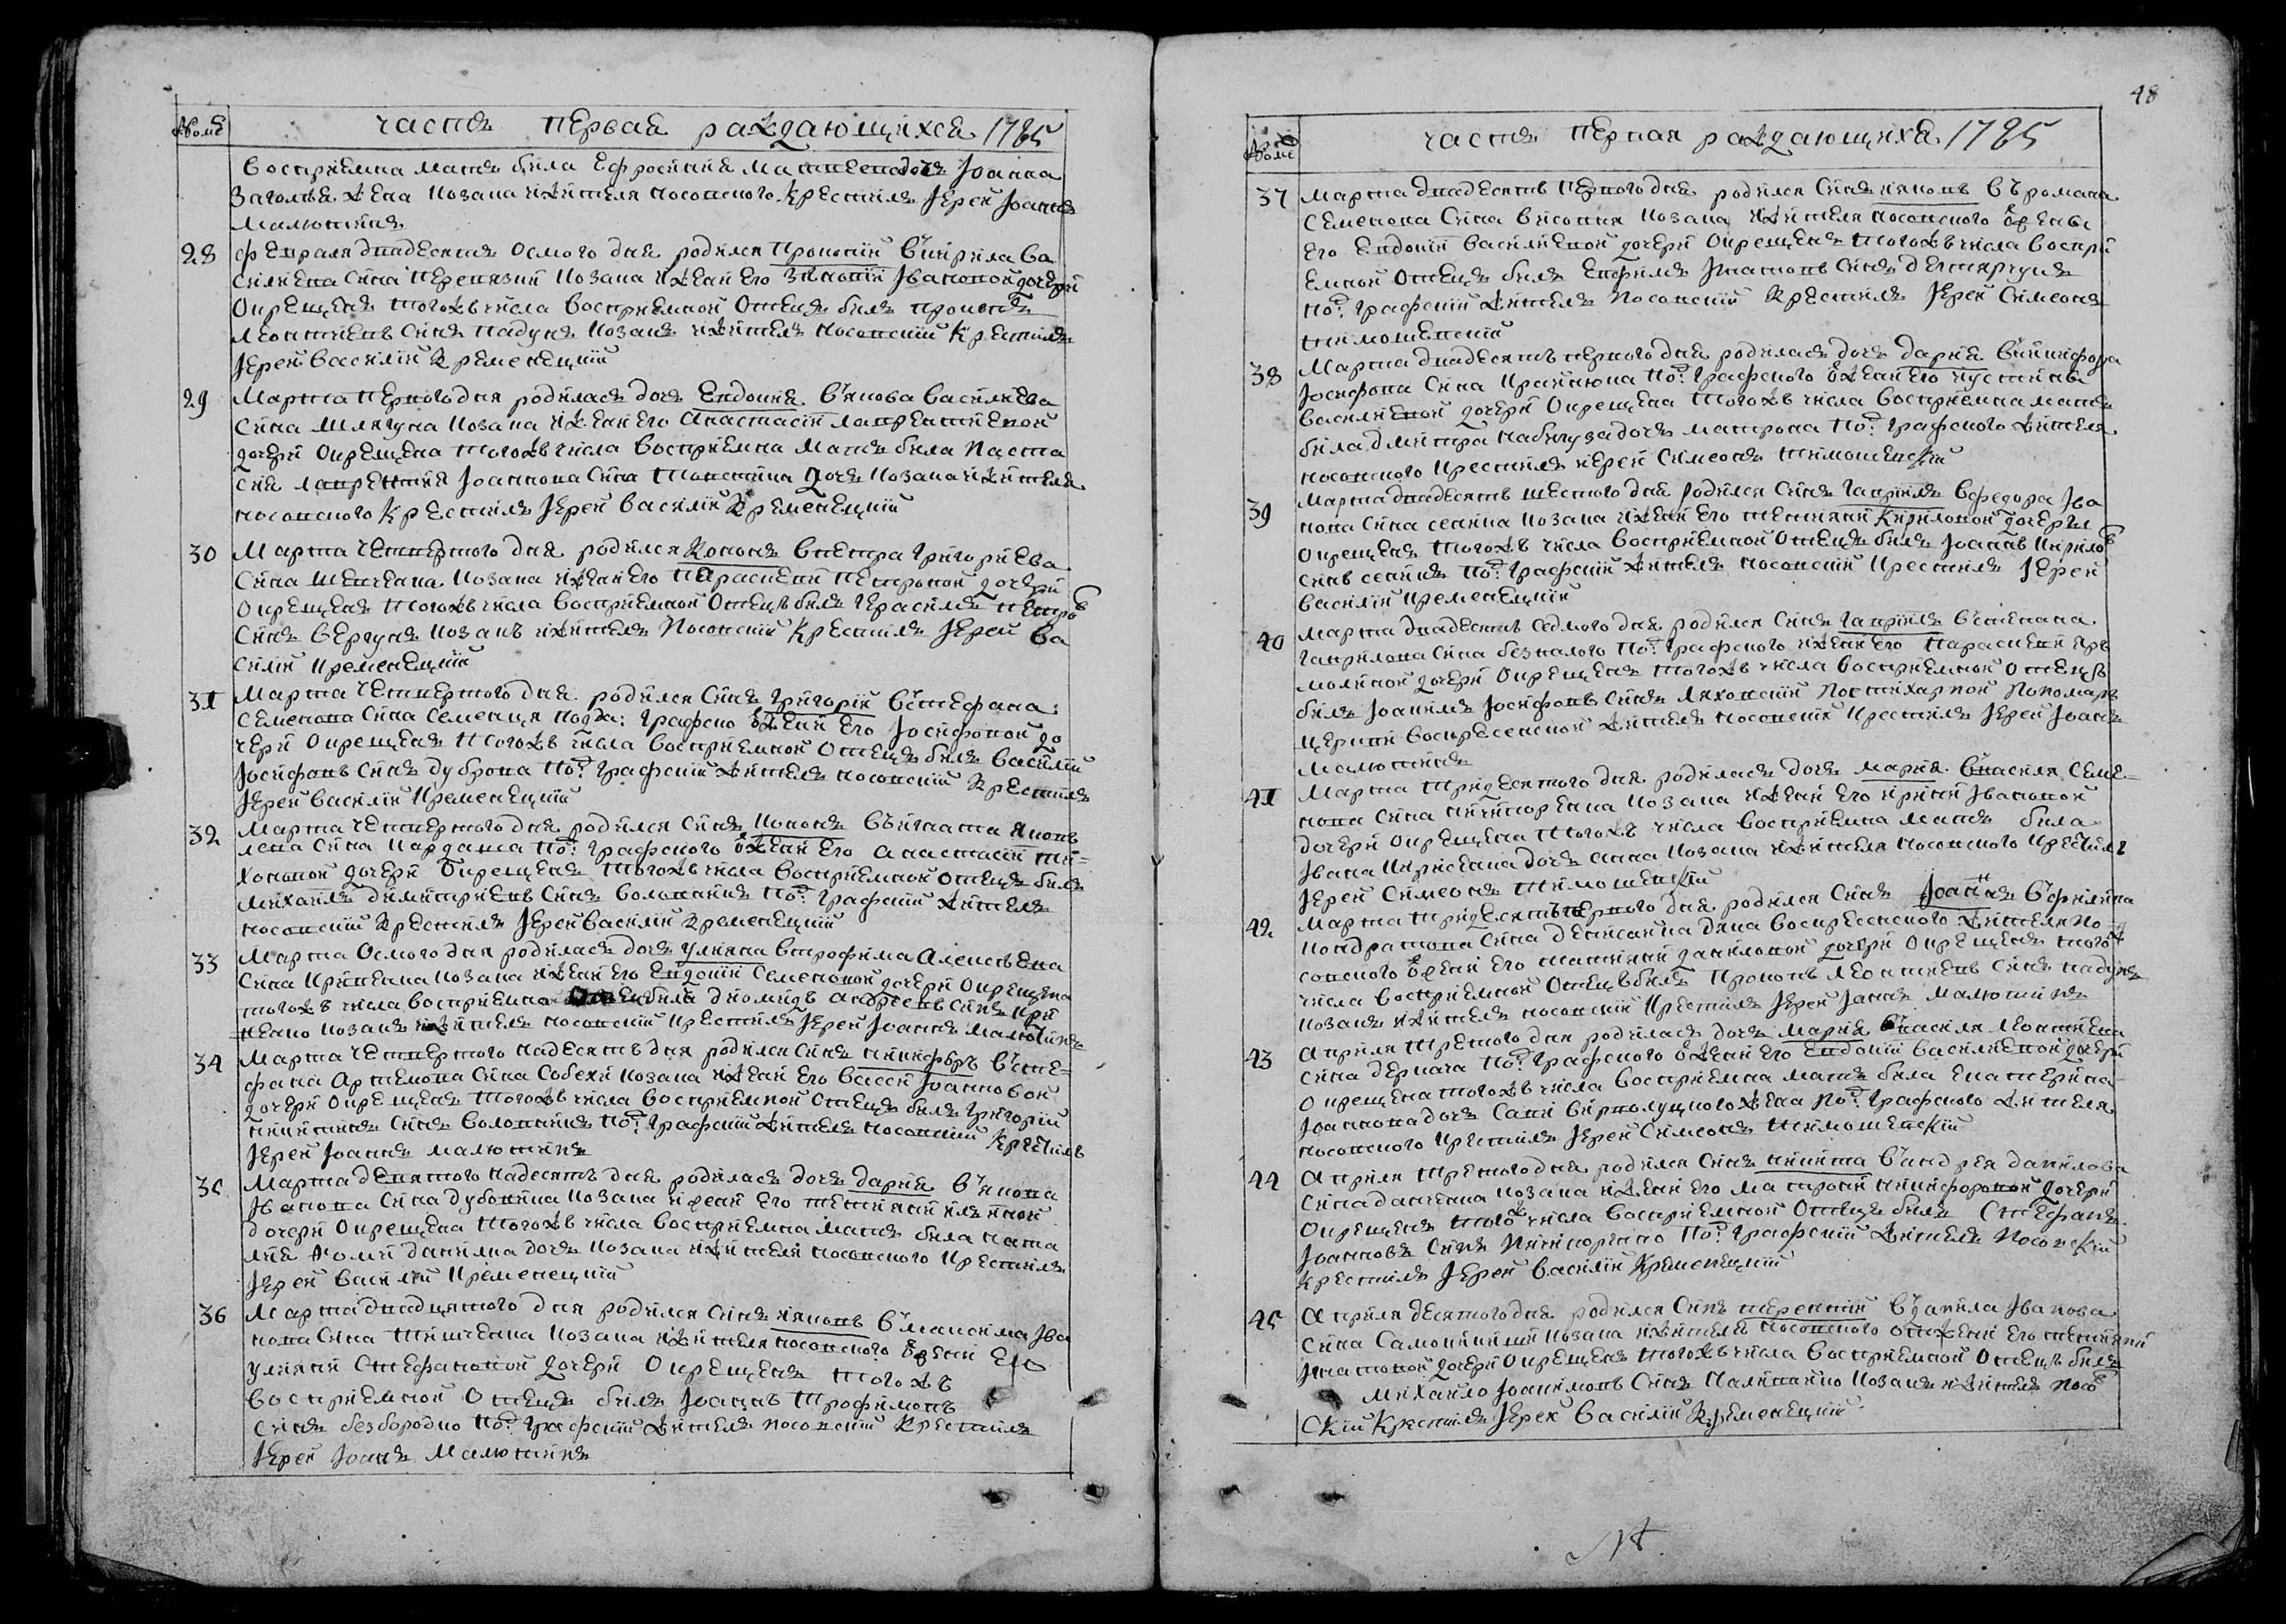 48
Номе
часть первая раждающихся 1785
восприемна мать была Ефросиния Матвеева дочь Іоанна
жена козака и жителя носовского Крестиль Іерей Іоаннъ
Малютинъ
28 февраля двадесять осмого дня родился Прокопий в Кирила Ва
силиева сина козака и жени его Зѣновии Івановой дочери
окрещенъ тогожъ числа восприемной отецъ былъ Прокопъ
Леонтиевъ синъ Падунъ козакъ и житель носовский Крестилъ
Іерей Василий Кременецкий
29 Марта первого дня родилась дочь Евдокия в Якова Василиева
сина Шляхуна козака и жени его Анастасии Лаврентиевой
дочери окрещена тогожъ числа восприемна мать была Наста
сия Лаврентия Іоаннова сина дочь козака и жителя
носовского Крестилъ Іерей Василий Кременецкий
30 Марта четвертого дня родился Кононъ в Петра Григориева
сина Шевченка козака и жени его Параскеви Петровой дочери
окрещенъ тогожъ числа восприемной отецъ былъ Герасимъ Петро
синъ Вергунъ козакъ и житель носовский Крестилъ Іерей Ва
силий Кременецкий
31 Марта четвертого дня родился синъ Григорий в Стефана
Семенова сина Семенця подда: графско и жени его Іосифовой до
чери окрещенъ тогожъ числа восприемной отецъ былъ Василий
Іосифовъ синъ Дуброва под: графский житель носовский Крестилъ
Іерей Василий Кременецкий
32 Марта четвертого дня родился синъ Кононъ в Игната Яковъ
лева сина Кардаша под: графского и жени его Анастасии Ти=
хоновой дочери окрещенъ тогожъ числа восприемной отецъ былъ
Михаилъ Димитриевъ синъ Волошинъ под: графский житель
носовский Крестилъ Іерей Василий Кременецкий
33 Марта осмого дня родилась дочь Улияна в Трофима Алексѣева
сина козака и жени его Евдокии Семеновой дочери окрещена
тогожъ числа восприемна была Диомидъ Андреевъ синъ Кри
козакъ и житель носовский Крестилъ Іерей Іоаннъ Малютинъ
34 Марта четвертого надесять дня родился синъ Никифоръ в Сте=
фана Артемова сина Собехи козака и жени его Васси Іоанновой
дочери окрещенъ тогожъ числа восприемной отецъ былъ Григорий
Никитинъ синъ Волошинъ под: графский житель носовский Крестилъ
Іерей Іоаннъ Малютинъ
35 Марта девятого надесять дня родилась дочь Дария в Якова
Іванова сина Дубовика козака и жени его Тетияни
дочери окрещена тогожъ числа восприемна мать была Ната
лия дочь козака и жителя носовского Крестилъ
Іерей Василий Кременецкий
36 Марта двадцятого дня родился синъ Яковъ в Максима Іва
нова сина козака и жителя носовского и жени его
Улияни Стефановой дочери окрещенъ тогожъ
восприемной отецъ былъ Іоаннъ Трофимовъ
синъ Безбородко под: графский житель носовский Крестилъ
Іерей Іоаннъ Малютинъ
Номе
часть первая раждающихся 1785
37 Марта двадесять первого дня родился синъ Яковъ в Романа
Семенова сина козака и жителя носовского и жени
его Евдокии Василиевой дочери окрещенъ тогожъ числа воспри
емной отецъ былъ Евфимъ Ігнатовъ синъ
под: графский житель носовский Крестилъ Іерей Симеонъ
Тимошевский
38 Марта двадесять первого дня родилась дочь Дария в Никифора
Іосифова сина под: графского и жени его Иустини
Василиевой дочери окрещена тогожъ числа восприемна мать
была Дмитра дочь Матрона под: графского жителя
носовского Крестилъ Иерей Симеонъ Тимошевский
39 Марта двадесять шестого дня родился синъ Гавриилъ в Федора Іва
нова сина козака и жени его Тетияни Кириловой дочери
окрещенъ тогожъ числа восприемной отецъ былъ Іоаннъ Кирило
синъ под: графский житель носовский Крестилъ Іерей
Василий Кременецкий
40 Марта двадесять седмого дня родился синъ Гавриилъ в Степана
Гаврилова сина под: графского и жени его Параскеви Яръ
молиной дочери окрещенъ тогожъ числа восприемной отецъ
былъ Іоакимъ Іосифовъ синъ Ляховский пономарь
церкви Воскресенской житель носовский Крестилъ Іерей Іоаннъ
Малютинъ
41 Марта тридесятого дня родилась дочь Мария в Василя Семе=
нова сина козака и жени его Ирини Івановой
дочери окрещена тогожъ числа восприемна мать была
Івана дочь Анна козака и жителя носовского Крестилъ
Іерей Симеонъ Тимошевский
42 Марта тридесять первого дня родился синъ Іоаннъ в Филипа
Кондратова сина дяка воскресенского жителя но
совского и жени его Татияни Даниловой дочери окрещенъ того
числа восприемной отецъ былъ Прокопъ Леонтиевъ синъ Падунъ
козакъ и житель носовский Крестилъ Іерей Іоаннъ Малютинъ
43 Априля третого дня родилась дочь Мария в Василя Леонтиева
сина Деркача под: графского и жени его Евдокии Василиевой дочери
окрещена тогожъ числа восприемна мать была Екатерина
Іоаннова дочь жена под: графского жителя
носовского Крестилъ Іерей Симеонъ Тимошевский
44 Априля третого дня родился синъ Никита в Андрея Данилова
сина козака и жени его Матрони Никифоровой дочери
окрещенъ тогожъ числа восприемной отецъ былъ Стефанъ
Іоанновъ синъ под: графский житель носовский
Крестилъ Іерей Василий Кременецкий
45 Априля десятого дня родился синъ Терентий в Данила Іванова
сина козака и жителя носовского отъ жени его Тетияни
Ігнатовой дочери окрещенъ тогожъ числа восприемной отецъ былъ
Михайло Іоакимовъ синъ козакъ и житель носо
ский Крестилъ Іерей Василий Кременецкий